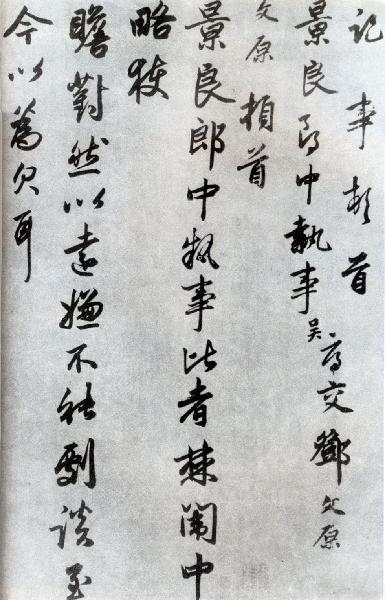 記事頓首
景良郎中執事 吴 交鄧文原
文原頓首
景良郎中執事比者棘闈中
略獲
瞻對然以遠嫌不能劇談至
今以為欠耳